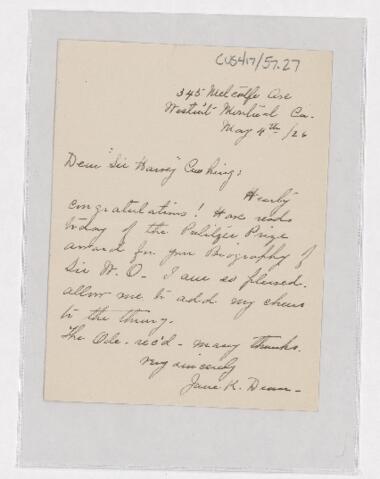 CUS417/57.27
345 Metcalfe Ave
West'mt Montreal Ca.
May 4th /26
Dear "Sir Harvey" Cushing:
Hearty
congratulations! Have read
today of the Pulitzer Prize
award for your Biography of
Sir W. O. I am so pleased.
allow me to add my cheers
to the throng.
The Ode. rec'd - many thanks.
Very sincerely
Jane K.